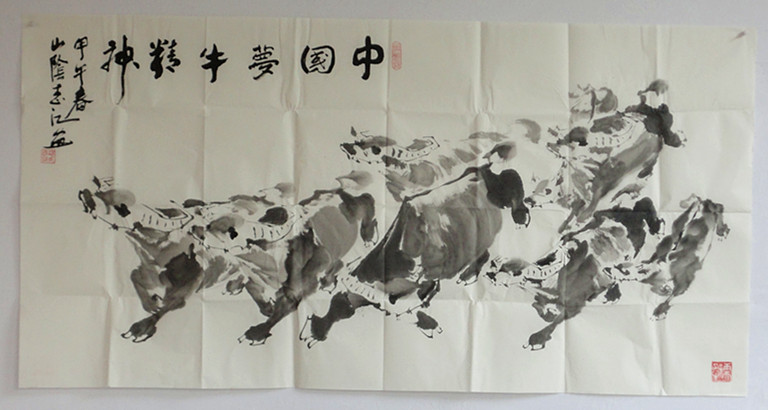 中國夢牛精神
甲午春
山陰志江畫